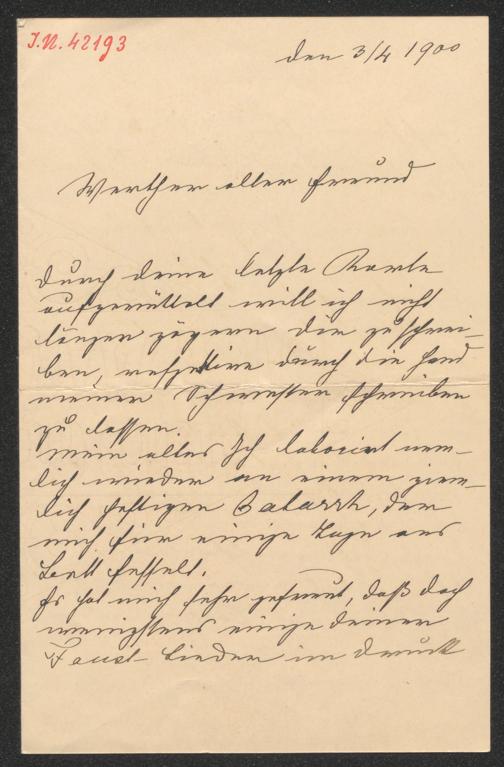 I.N. 42193
den 3/4 1900
Werther alter Freund
durch deine letzte Karte
aufgerüttelt will ich nicht
länger zögern dir zu schrei-
ben, respektive durch die Hand
meiner Schwester schreiben
zu lassen.
Mein altes Ich laborirt nem-
lich wieder an einem ziem-
lich heftigen Catarrh, der
mich für einige Tage ans
Bett fesselt.
Es hat mich sehr gefreut, daß doch
wenigstens einige deiner
Faust-Lieder im Druck